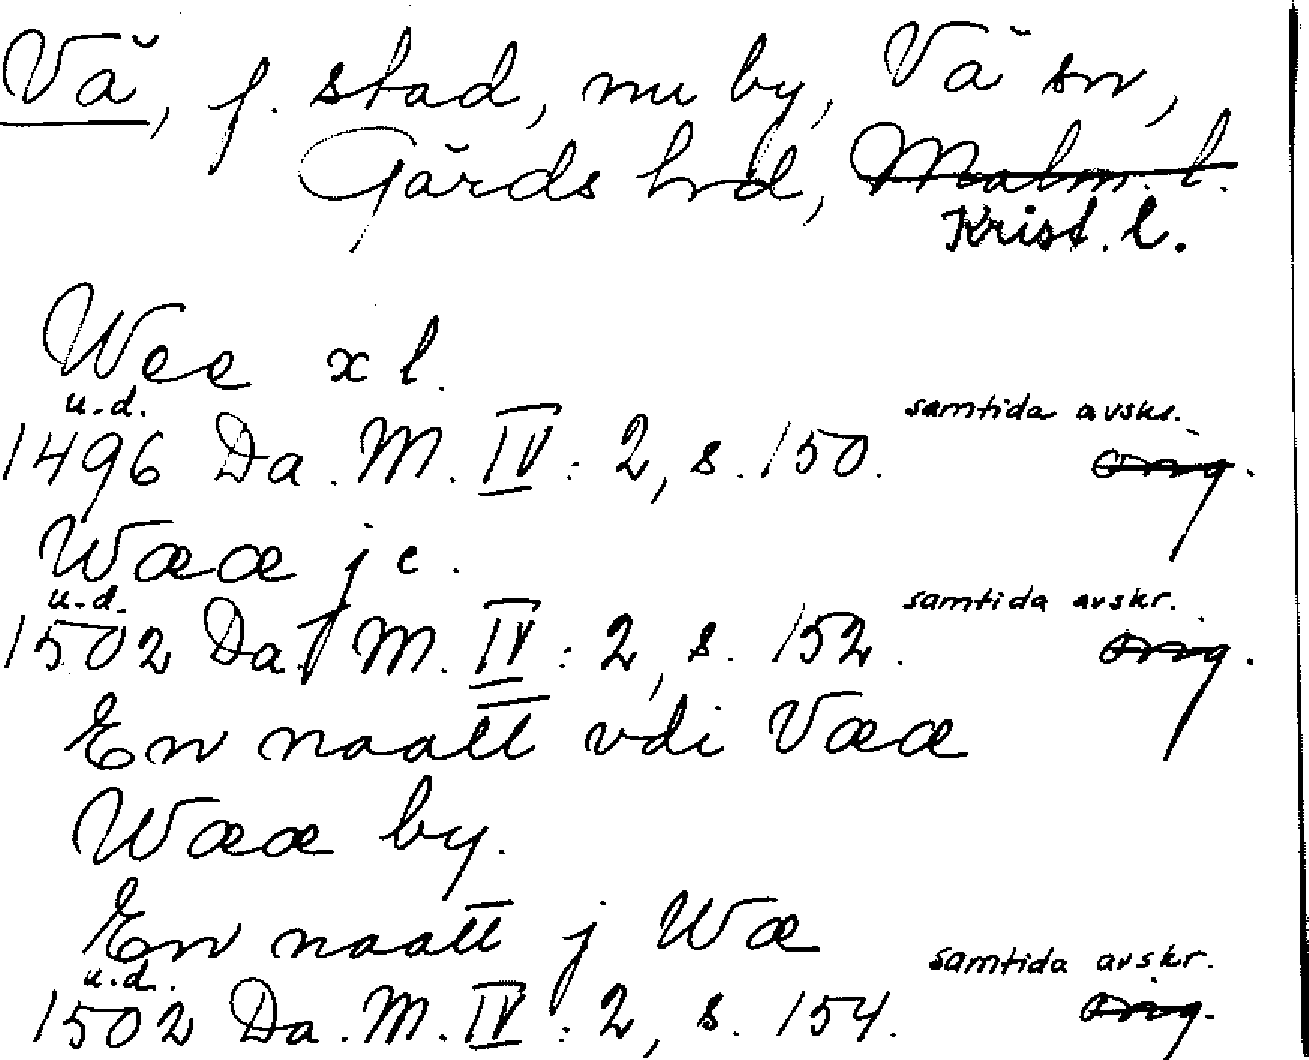 Vä, f. stad, nu by, Vä sn,
Gärds hrd, Malm. l.
Krist. l.
Wee x l.
u.d. samtida avskr.
1496 Da. M. IV: 2, s. 150. orig.
Wææ j c.
u.d. samtida avskr.
1502 Da. M. IV: 2, s. 152. orig.
En naatt vdi Vææ
Wææ by.
En naatt j Wæ
u.d. samtida avskr.
1502 Da. M. IV: 2, s. 154. orig.